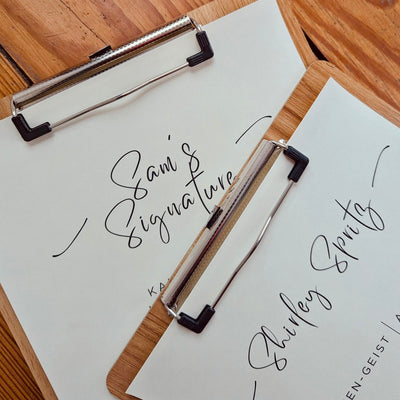 Sam's
Signature
KA
Shirley Spritz
EN-GEIST | A